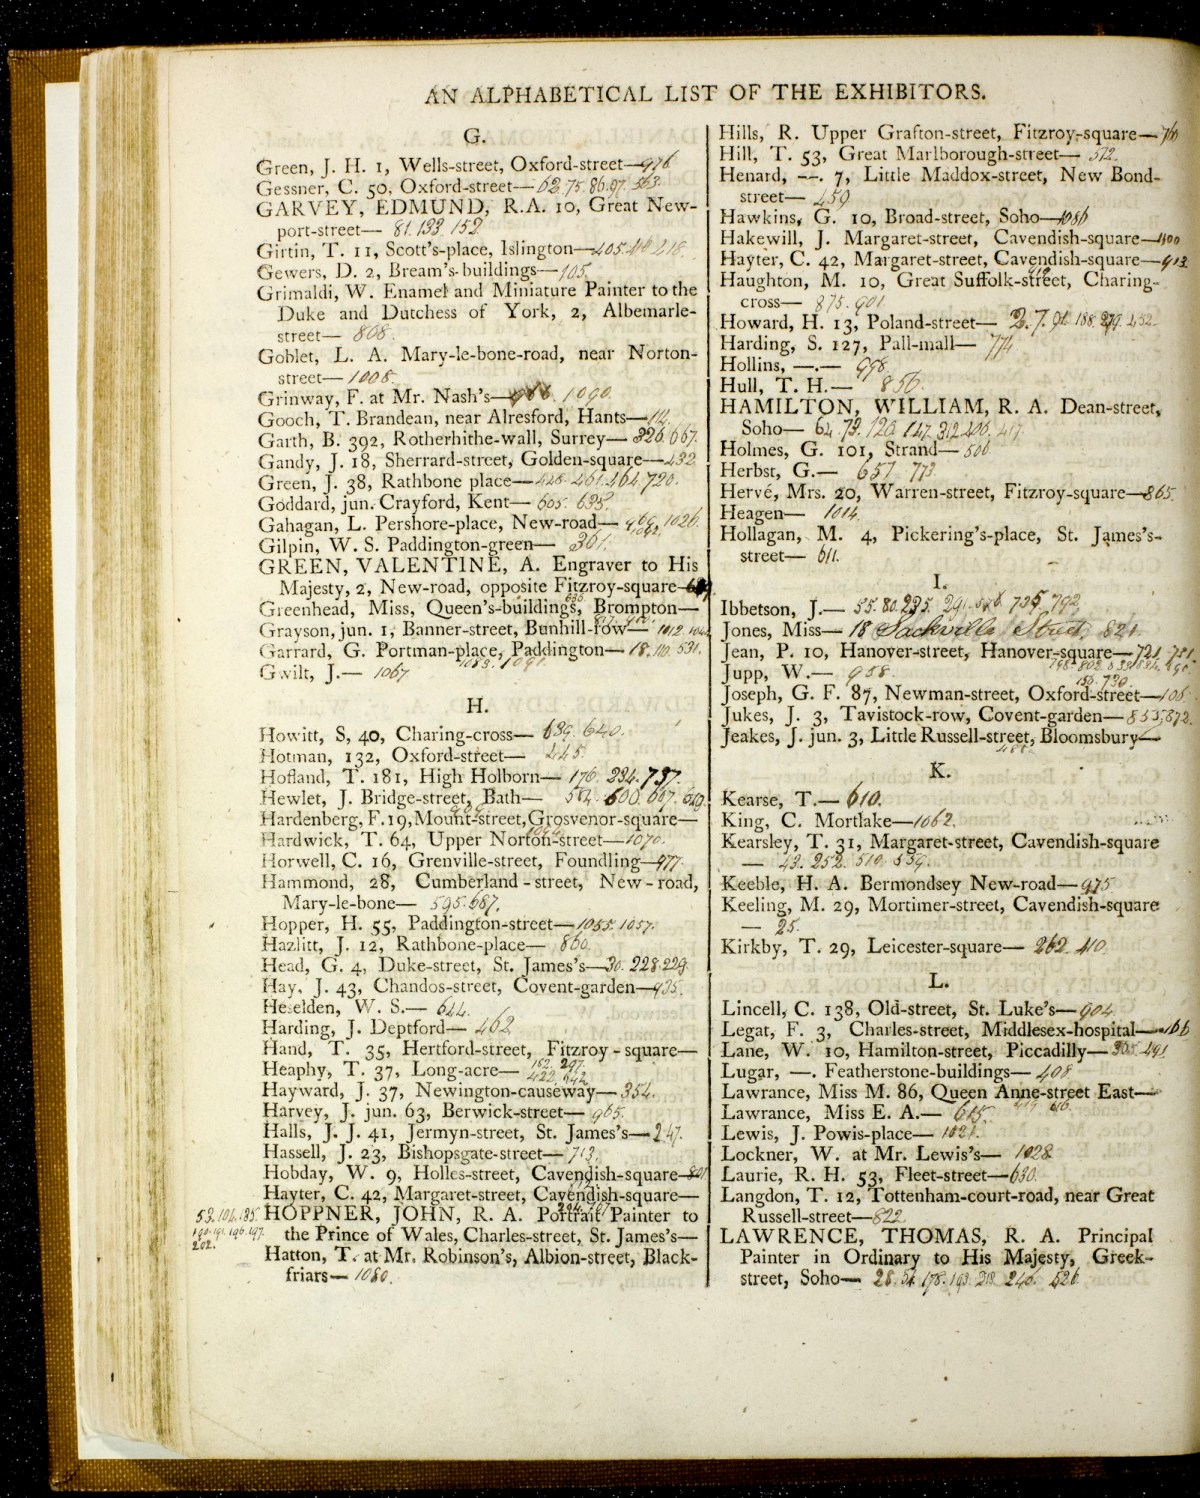 AN ALPHABETICAL LIST OF THE EXHIBITORS.
G.
Green, J. H. 1, Wells-street, Oxford-street— 976
Gessner, C. 50, Oxford-street— 62. 75. 86. 97. 563.
GARVEY, EDMUND, R.A. 10, Great New-
port-street— 81. 133. 152
Girtin, T. 11, Scott's-place, Islington— 405. 418.
Gewers, D. 2, Bream's-buildings— 105.
Grimaldi, W. Enamel and Miniature Painter to the
Duke and Dutchess of York, 2, Albemarle-
street— 808.
Goblet, L. A. Mary-le-bone-road, near Norton-
street— 1008.
Grinway, F. at Mr. Nash's— 1090.
Gooch, T. Brandean, near Alresford, Hants— 14.
Garth, B. 392, Rotherhithe-wall, Surrey— 326. 667.
Gandy, J. 18, Sherrard-street, Golden-square— 432
Green, J. 38, Rathbone place— 446. 461. 464. 720.
Goddard, jun. Crayford, Kent— 605. 635.
Gahagan, L. Pershore-place, New-road— 969. 1026.
1042.
Gilpin, W. S. Paddington-green— 361.
GREEN, VALENTINE, A. Engraver to His
Majesty, 2, New-road, opposite Fitzroy-square—
Greenhead, Miss, Queen's-buildings, Brompton—
Grayson, jun. 1, Banner-street, Bunhill-row— 1012.
Garrard, G. Portman-place, Paddington— 18. 110. 531.
1083. 1091.
Gwilt, J.— 1067
H.
Howitt, S, 40, Charing-cross— 639. 640.
Hotman, 132, Oxford-street— 445.
Hofland, T. 181, High Holborn— 176. 234. 737.
Hewlet, J. Bridge-street, Bath— 554. 600. 607.
Hardenberg, F. 19, Mount-street, Grosvenor-square—
Hardwick, T. 64, Upper Norton-street— 1070.
Horwell, C. 16, Grenville-street, Foundling— 977.
Hammond, 28, Cumberland-street, New-road,
Mary-le-bone— 595. 687.
Hopper, H. 55, Paddington-street— 1055. 1057.
Hazlitt, J. 12, Rathbone-place— 860.
Head, G. 4, Duke-street, St. James's— 30. 228. 229.
Hay, J. 43, Chandos-street, Covent-garden— 935.
Heselden, W. S.— 644.
Harding, J. Deptford— 462
Hand, T. 35, Hertford-street, Fitzroy-square—
162. 297.
Heaphy, T. 37, Long-acre— 422. 842
Hayward, J. 37, Newington-causeway— 354.
Harvey, J. jun. 63, Berwick-street— 965.
Halls, J. J. 41, Jermyn-street, St. James's— 247.
Hassell, J. 23, Bishopsgate-street— 713.
Hobday, W. 9, Holles-street, Cavendish-square— 801
Hayter, C. 42, Margaret-street, Cavendish-square—
53. 104. 135. HOPPNER, JOHN, R. A. Portrait Painter to
190. 191. 196. 197. the Prince of Wales, Charles-street, St. James's—
202.
Hatton, T. at Mr. Robinson's, Albion-street, Black-
friars— 1080.
Hills, R. Upper Grafton-street, Fitzroy-square—
Hill, T. 53, Great Marlborough-street— 572.
Henard, —. 7, Little Maddox-street, New Bond-
street— 459
Hawkins, G. 10, Broad-street, Soho— 1086
Hakewill, J. Margaret-street, Cavendish-square— 1100
Hayter, C. 42, Margaret-street, Cavendish-square— 913.
918
Haughton, M. 10, Great Suffolk-street, Charing-
cross— 875. 901.
Howard, H. 13, Poland-street— 2. 7. 91. 188. 279. 452.
Harding, S. 127, Pall-mall— 774
Hollins, —.— 998.
Hull, T. H.— 856.
HAMILTON, WILLIAM, R. A. Dean-street,
Soho— 64. 73. 120. 147. 312. 406. 417.
Holmes, G. 101, Strand— 500
Herbst, G.— 657 773
Hervé, Mrs. 20, Warren-street, Fitzroy-square— 865.
Heagen— 1014.
Hollagan, M. 4, Pickering's-place, St. James's-
street— 611.
I.
Ibbetson, J.— 55. 80. 235. 291. 576. 725. 792.
Jones, Miss— 18 Sackville Street, 821.
Jean, P. 10, Hanover-street, Hanover-square— 721. 781.
Jupp, W.— 958.
156. 730.
Joseph, G. F. 87, Newman-street, Oxford-street— 106.
Jukes, J. 3, Tavistock-row, Covent-garden— 855. 872.
Jeakes, J. jun. 3, Little Russell-street, Bloomsbury—
K.
Kearse, T.— 610.
King, C. Mortlake— 1062.
Kearsley, T. 31, Margaret-street, Cavendish-square
— 43. 252. 510. 539.
Keeble, H. A. Bermondsey New-road— 975.
Keeling, M. 29, Mortimer-street, Cavendish-square
— 25.
Kirkby, T. 29, Leicester-square— 262. 410.
L.
Lincell, C. 138, Old-street, St. Luke's— 904
Legat, F. 3, Charles-street, Middlesex-hospital— 166
Lane, W. 10, Hamilton-street, Piccadilly— 305. 491
Lugar, —. Featherstone-buildings— 408
Lawrance, Miss M. 86, Queen Anne-street East—
Lawrance, Miss E. A.— 615.
Lewis, J. Powis-place— 1021.
Lockner, W. at Mr. Lewis's— 1028
Laurie, R. H. 53, Fleet-street— 630.
Langdon, T. 12, Tottenham-court-road, near Great
Russell-street— 822
LAWRENCE, THOMAS, R. A. Principal
Painter in Ordinary to His Majesty, Greek-
street, Soho— 28. 54. 178. 193. 218. 246. 526